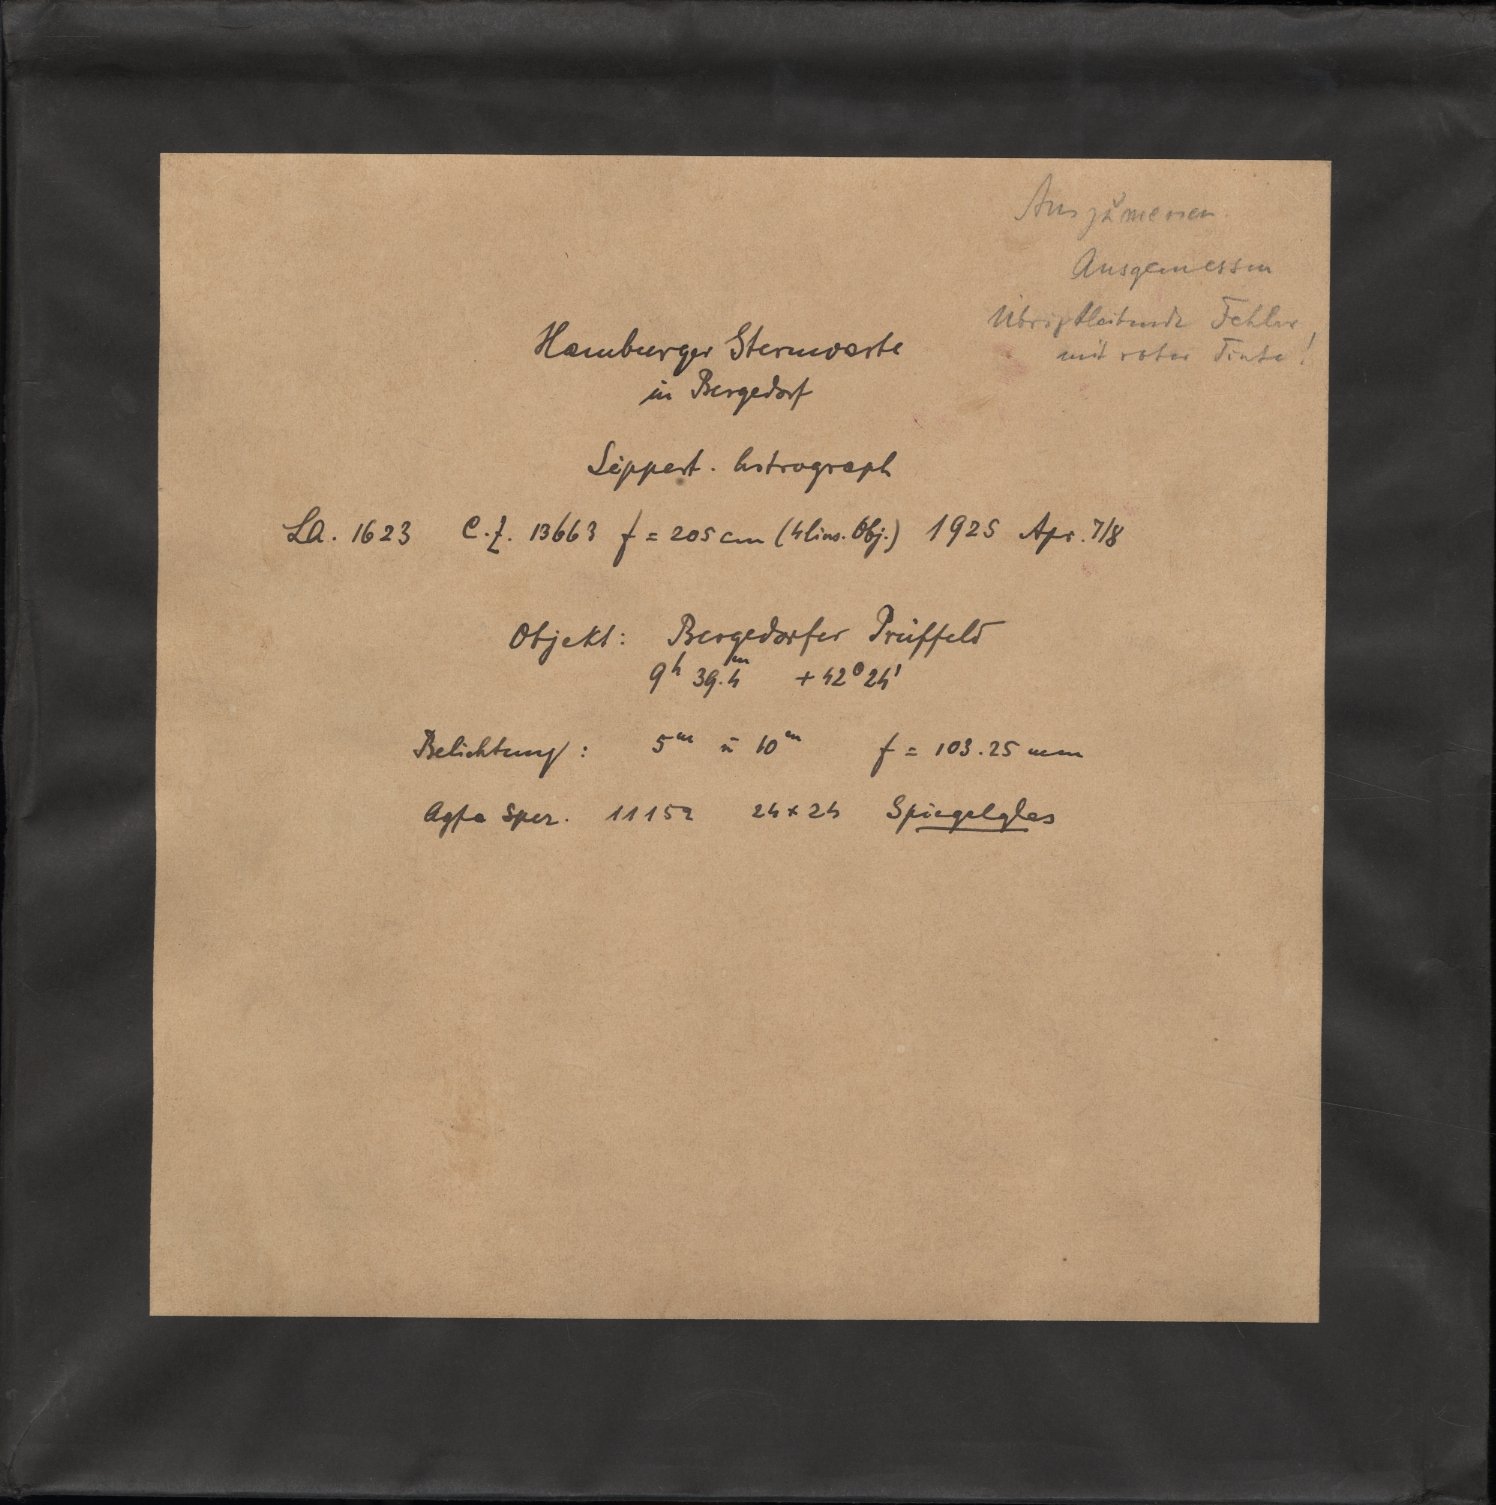 Auszumessen.
Ausgemessen
Übrigbleibende Fehler
mit roter Tinte!
Hamburger Sternwarte
in Bergedorf
Lippert. Astrograph
LA. 1623 C.Z. 13663 f = 205 cm (4lins. Obj.) 1925 Apr. 7/8
Objekt: Bergedorfer Prüffeld
9h 39.4m + 42° 24'
Belichtung: 5m u 10m f = 103.25 mm
Agfa Spez. 11152 24 x 24 Spiegelglas